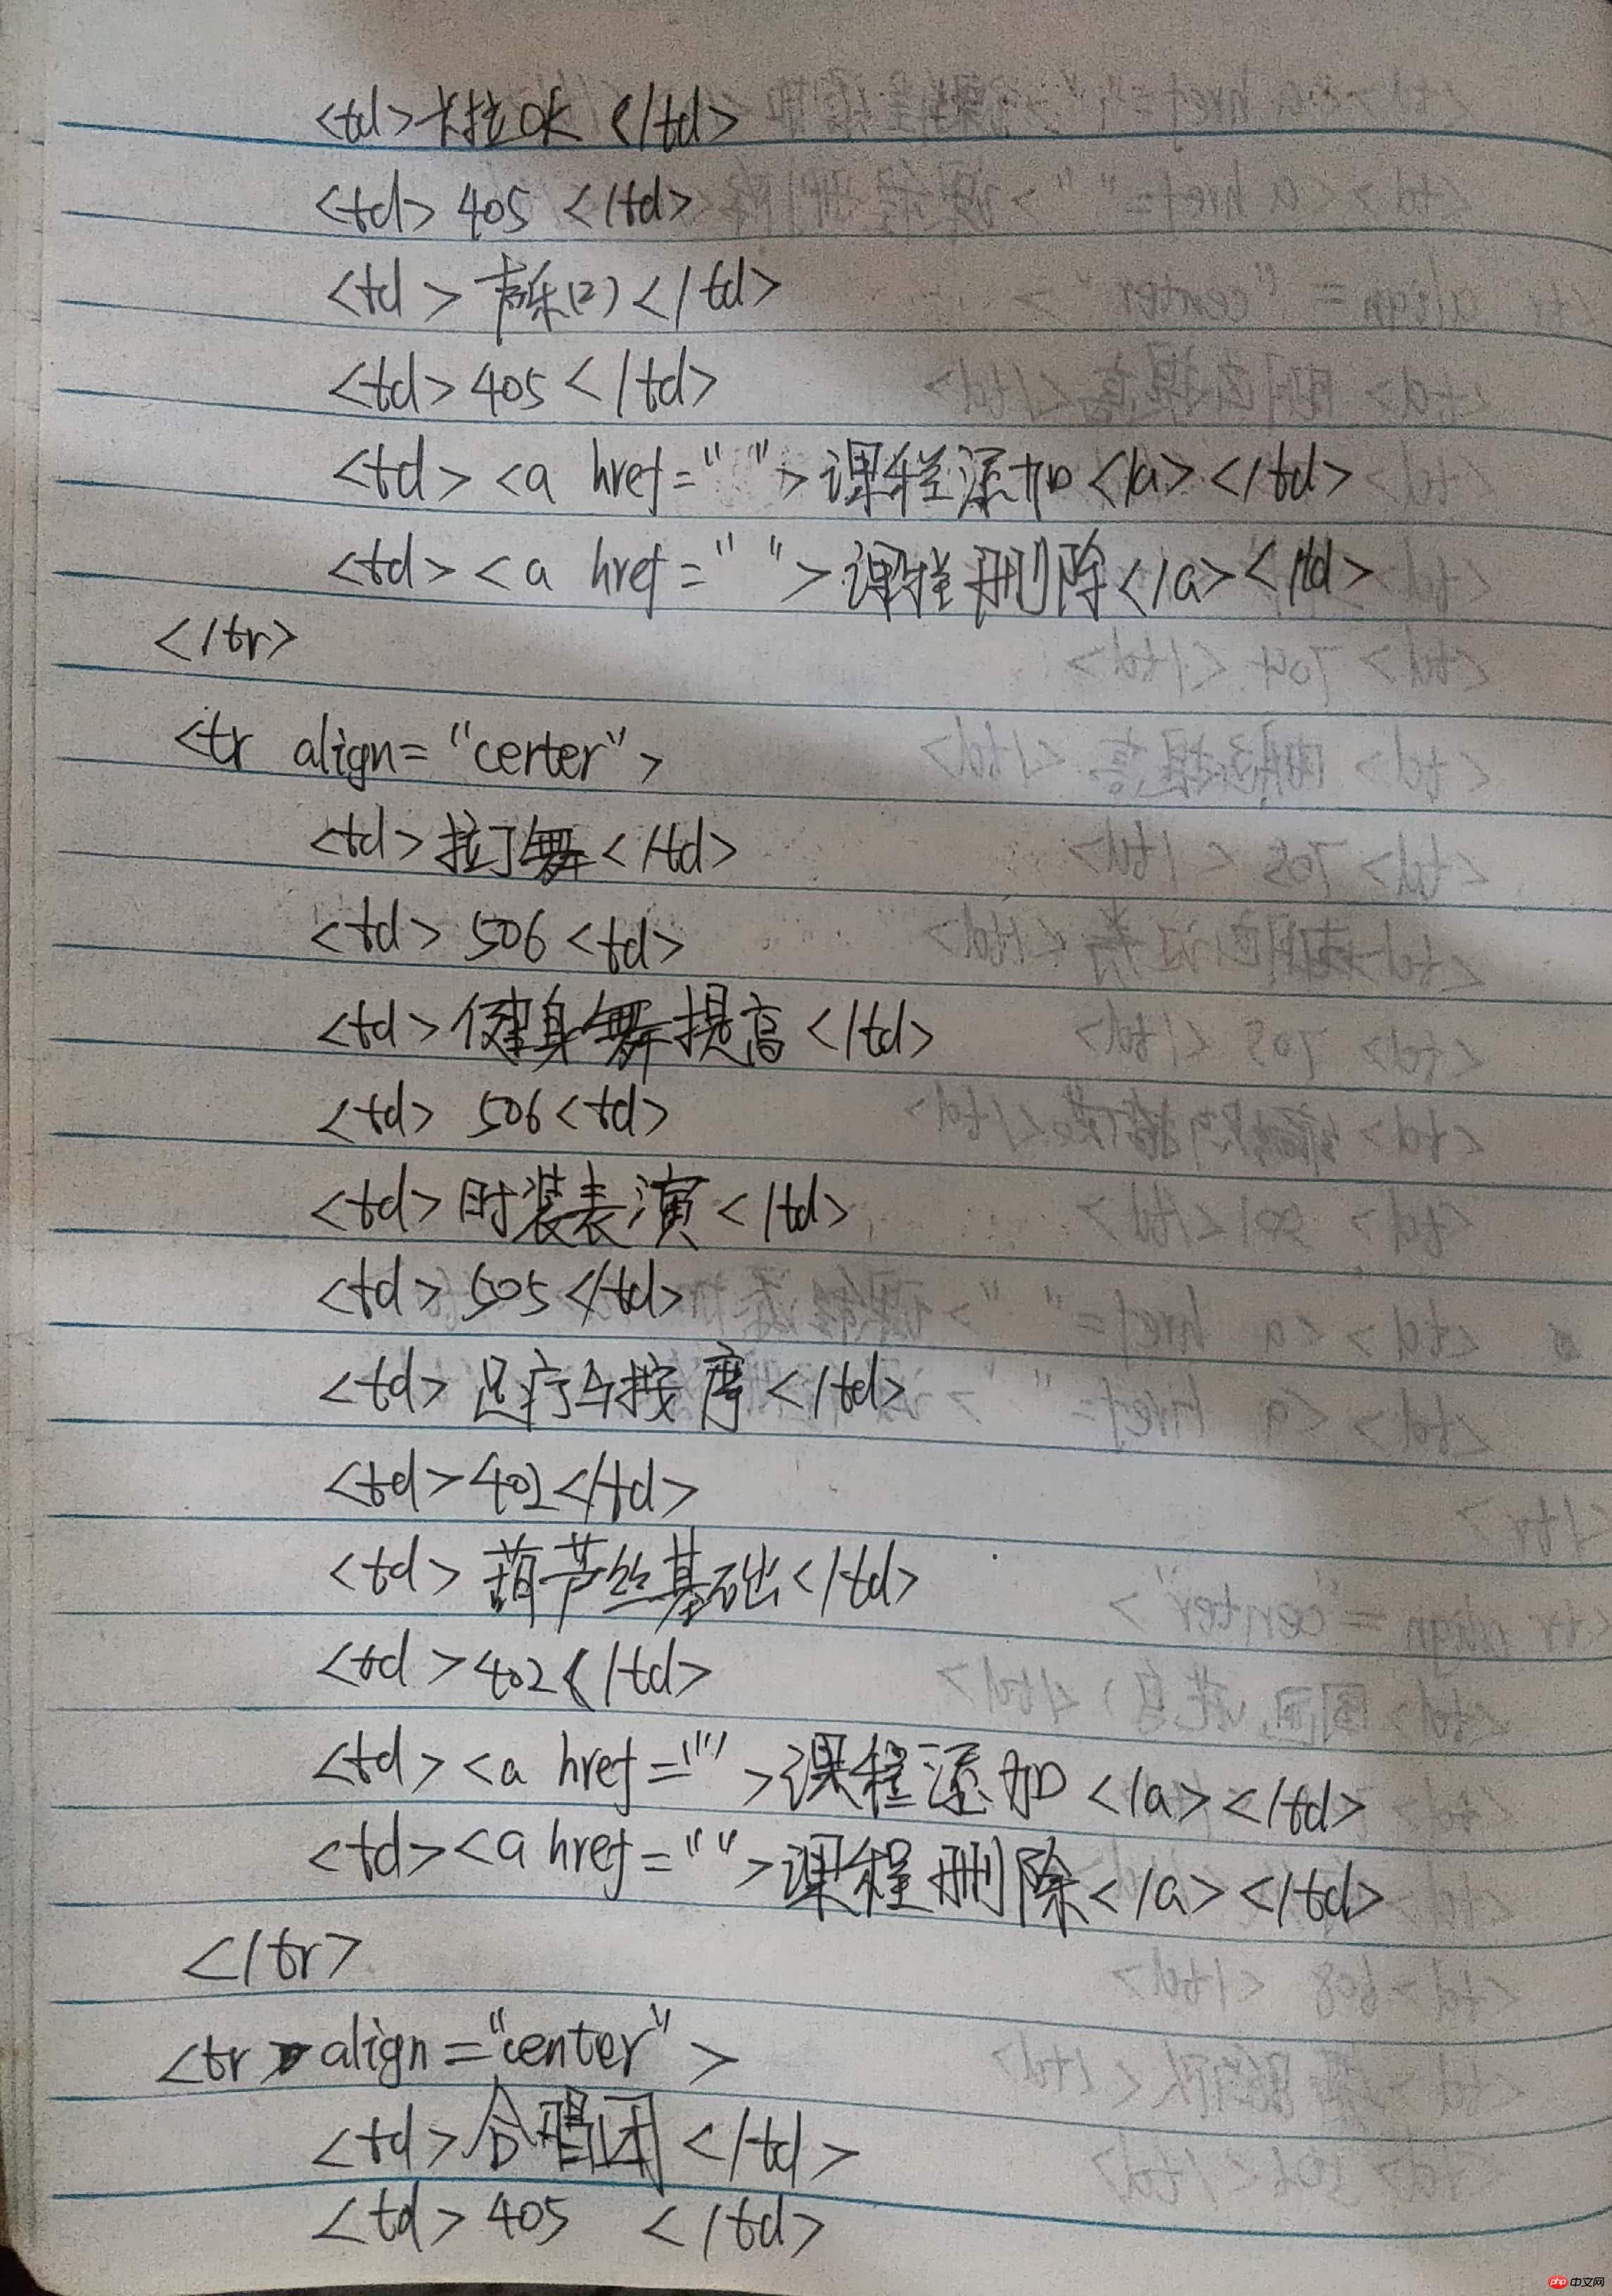 <td>卡拉OK</td>
<td>405</td>
<td>声乐(2)</td>
<td>405</td>
<td><a href="">课程添加</a></td>
<td><a href="">课程删除</a></td>
</tr>
<tr align="certer">
<td>拉丁舞</td>
<td>506<td>
<td>健身舞提高</td>
<td>506<td>
<td>时装表演</td>
<td>505</td>
<td>足疗与按摩</td>
<td>402</td>
<td>葫芦丝基础</td>
<td>402</td>
<td><a href="">课程添加</a></td>
<td><a href="">课程删除</a></td>
</tr>
<tr align="center">
<td>合唱团</td>
<td>405</td>
php 中文网